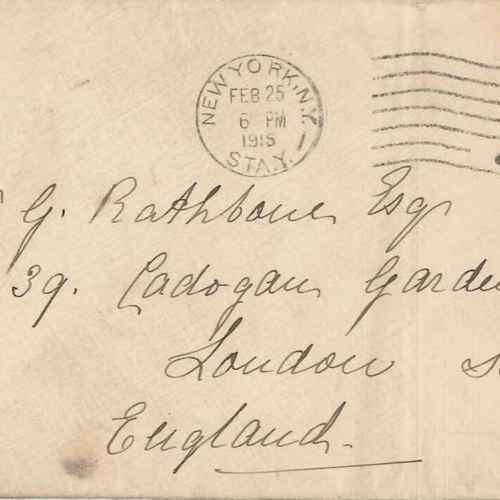 NEW YORK, N.Y.
FEB 25
6 PM
1915
STA. Y.
G. Rathbone Esq
39. Cadogan Garde
London S
England